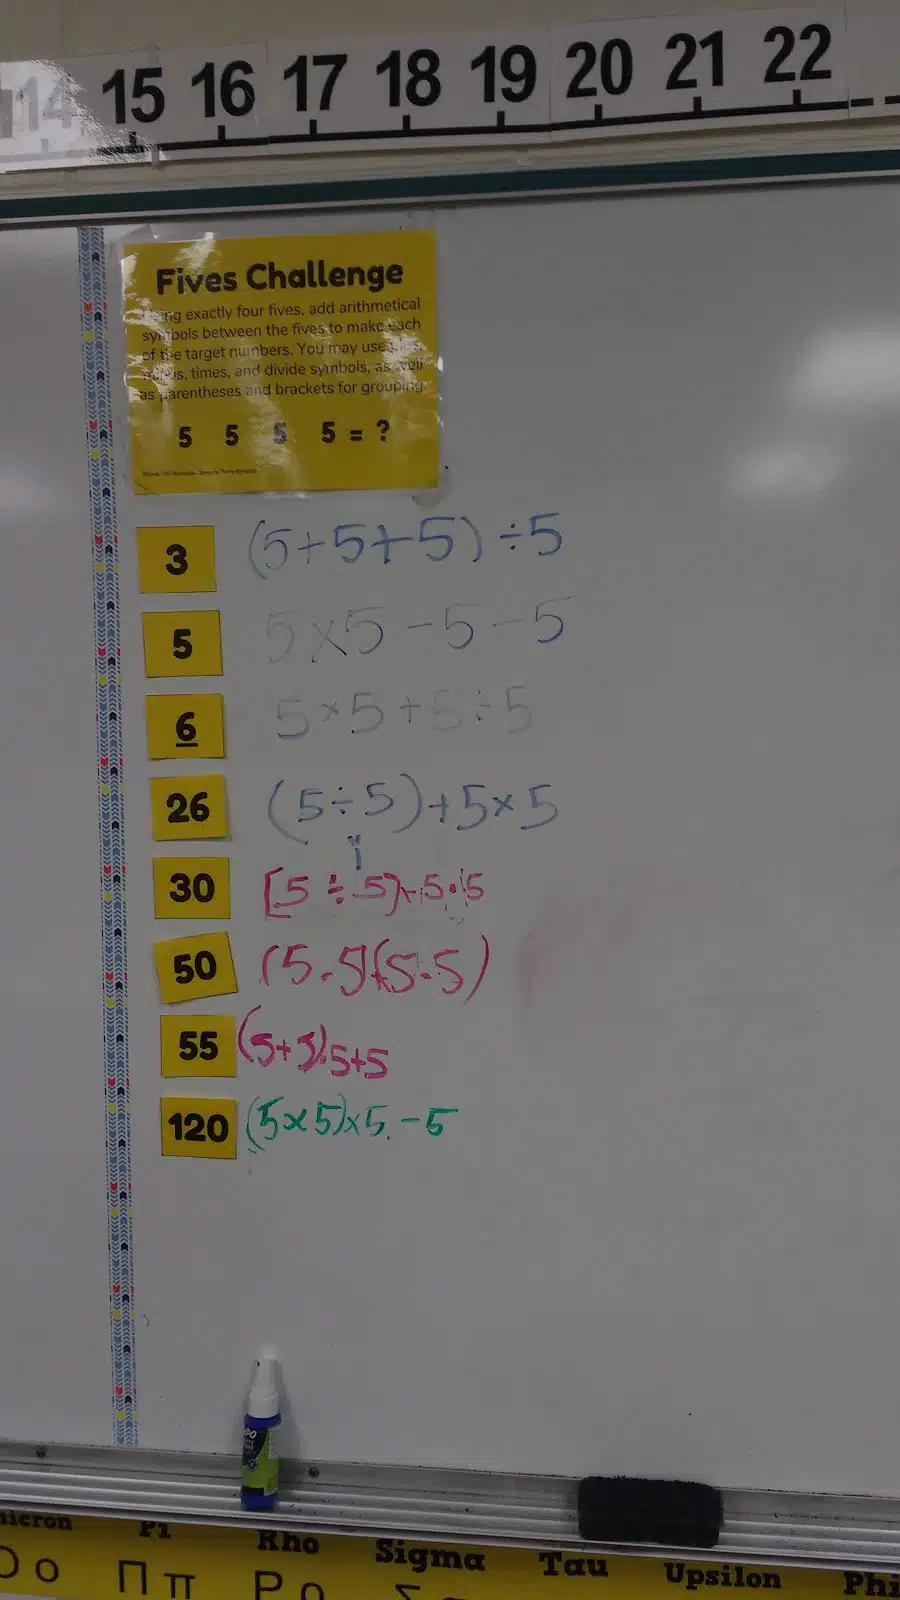 14 15 16 17 18 19 20 21 22
Fives Challenge
Using exactly four fives, add arithmetical
symbols between the fives to make each
of the target numbers. You may use plus,
minus, times, and divide symbols, as well
as parentheses and brackets for grouping.
5 5 5 5 = ?
3 (5+5+5) ÷5
5 5×5 -5 -5
6 5×5+5÷5
26 (5÷5)+5×5
30 [5 ÷ 5]+5·5
50 (5·5)+(5·5)
55 (5+5)·5+5
120 (5×5)×5 -5
micron Pi Rho Sigma Tau Upsilon Phi
Ο ο Π π Ρ ρ Σ